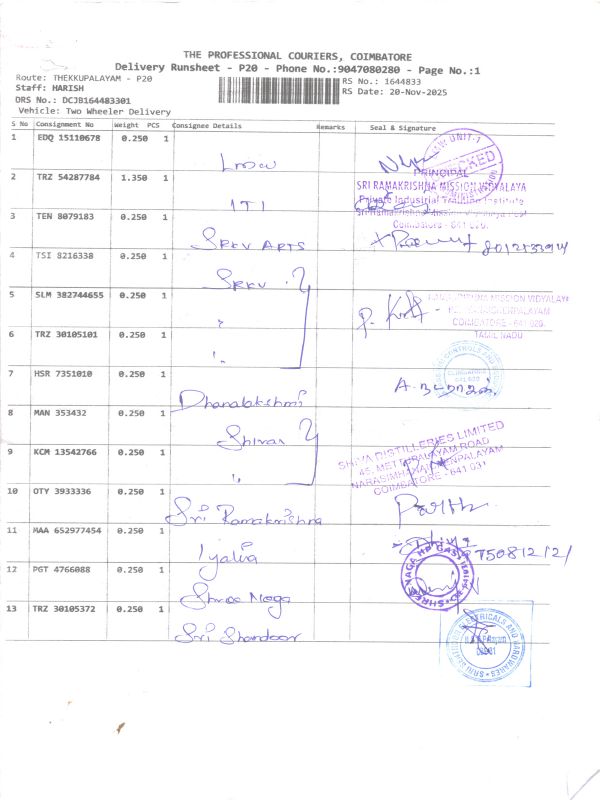 THE PROFESSIONAL COURIERS, COIMBATORE
Delivery Runsheet - P20 - Phone No.:9047080280 - Page No.:1
Route: THEKKUPALAYAM - P20
RS No.: 1644833
Staff: HARISH
RS Date: 20-Nov-2025
DRS No.: DCJB164483301
Vehicle: Two Wheeler Delivery
S No Consignment No Weight PCS Consignee Details Remarks Seal & Signature
1 EDQ 15110678 0.250 1
2 TRZ 54287784 1.350 1 ITI
PRINCIPAL
SRI RAMAKRISHNA MISSION VIDYALAYA
Private Industrial Training Institute
Coimbatore - 641 020.
3 TEN 8079183 0.250 1 SRKV ARTS
4 TSI 8216338 0.250 1 SRKV
5 SLM 382744655 0.250 1 "
MISSION VIDYALAYA
COIMBATORE - 641 020.
TAMIL NADU
6 TRZ 30105101 0.250 1 "
7 HSR 7351010 0.250 1 Dhanalakshmi
8 MAN 353432 0.250 1 Shivas
SHIVA DISTILLERIES LIMITED
45, METTUPALAYAM ROAD
NARASIMHANAICKENPALAYAM
COIMBATORE - 641 031
9 KCM 13542766 0.250 1 "
10 OTY 3933336 0.250 1 Sri Ramakrishna
11 MAA 652977454 0.250 1
12 PGT 4766088 0.250 1 Shree Naga
SHREE NAGA HP GAS
13 TRZ 30105372 0.250 1 Sri Shandoor